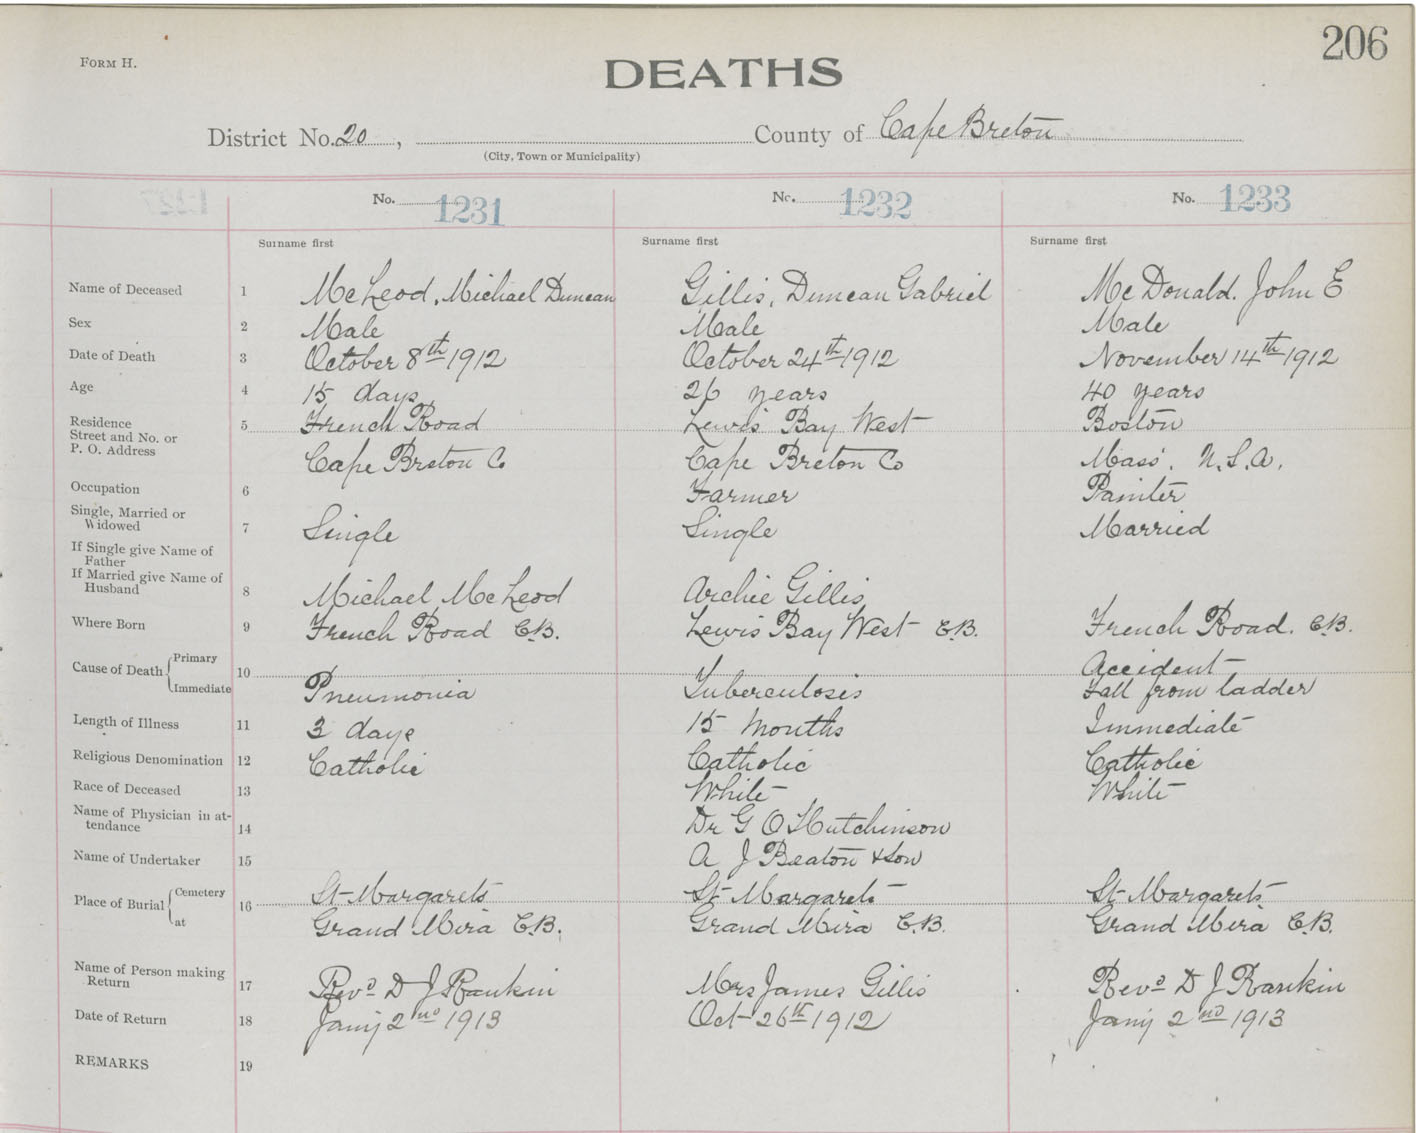 206
FORM H.
DEATHS
District No. 20, County of Cape Breton
(City, Town or Municipality)
No. 1231 No. 1232 No. 1233
Surname first Surname first Surname first
Name of Deceased 1 McLeod, Michael Duncan Gillis, Duncan Gabriel McDonald. John E
Sex 2 Male Male Male
Date of Death 3 October 8th 1912 October 24th 1912 November 14th 1912
Age 4 15 days 26 years 40 years
Residence 5 French Road Lewis Bay West Boston
Street and No. or
P. O. Address Cape Breton Co Cape Breton Co Mass. U.S.A.
Occupation 6 Farmer Painter
Single, Married or
Widowed 7 Single Single Married
If Single give Name of
Father
If Married give Name of
Husband 8 Michael McLeod Archie Gillis
Where Born 9 French Road C.B. Lewis Bay West C.B. French Road. C.B.
Cause of Death Primary 10 Accident
Immediate Pneumonia Tuberculosis Fall from ladder
Length of Illness 11 3 days 15 months Immediate
Religious Denomination 12 Catholic Catholic Catholic
Race of Deceased 13 White White
Name of Physician in at-
tendance 14 Dr G O Hutchinson
Name of Undertaker 15 A J Beaton & Son
Place of Burial Cemetery 16 St Margarets St Margarets St Margarets
at Grand Mira C.B. Grand Mira C.B. Grand Mira C.B.
Name of Person making
Return 17 Revd D J Rankin Mrs James Gillis Revd D J Rankin
Date of Return 18 Jany 2nd 1913 Oct 26th 1912 Jany 2nd 1913
REMARKS 19